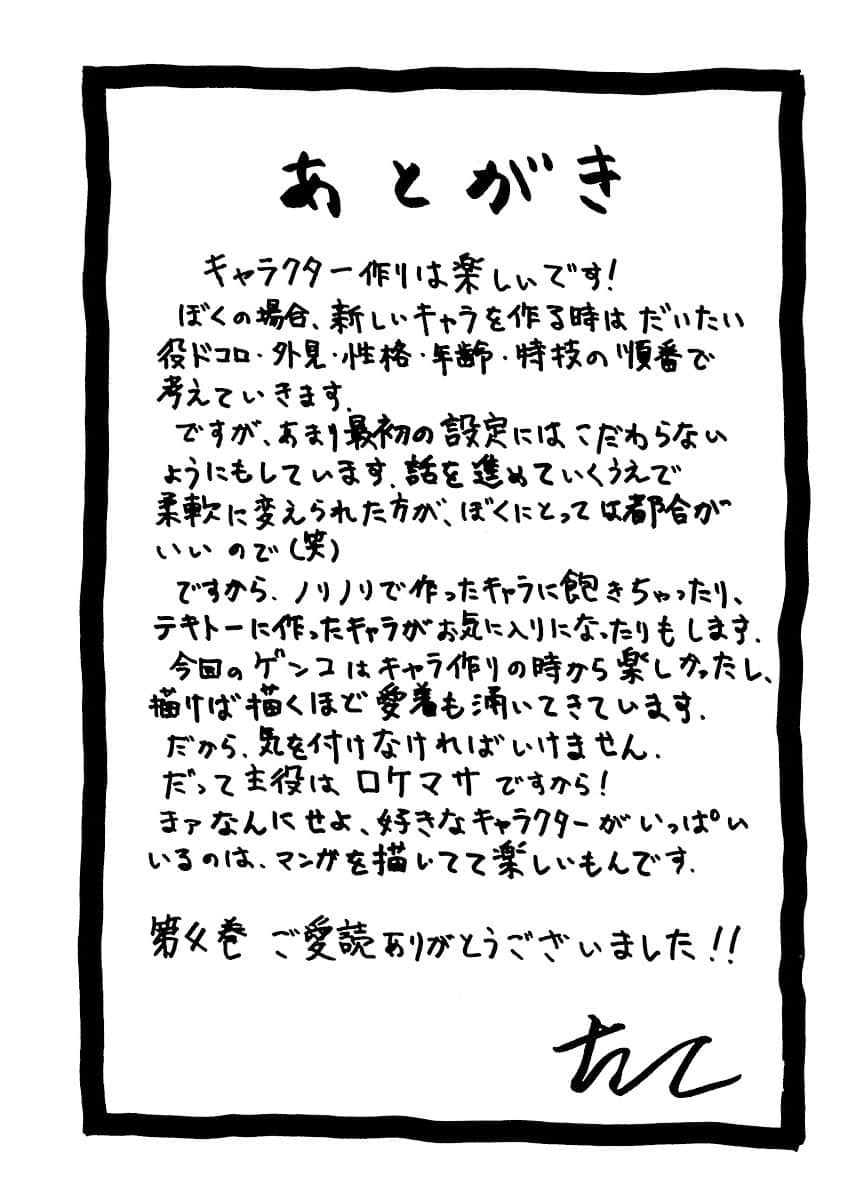 あとがき
キャラクター作りは楽しいです!
ぼくの場合、新しいキャラを作る時はだいたい
役ドコロ・外見・性格・年齢・特技の順番で
考えていきます.
ですが、あまり最初の設定にはこだわらない
ようにもしています.話を進めていくうえで
柔軟に変えられた方が、ぼくにとっては都合が
いいので(笑)
ですから、ノリノリで作ったキャラに飽きちゃったり、
テキトーに作ったキャラがお気に入りになったりもします.
今回のゲンコはキャラ作りの時から楽しかったし、
描けば描くほど愛着も涌いてきています.
だから、気を付けなければいけません.
だって主役は、ロケマサですから!
まァなんにせよ、好きなキャラクターがいっぱい
いるのは、マンガを描いてて楽しいもんです.
巻 ご愛読ありがとうございました!!